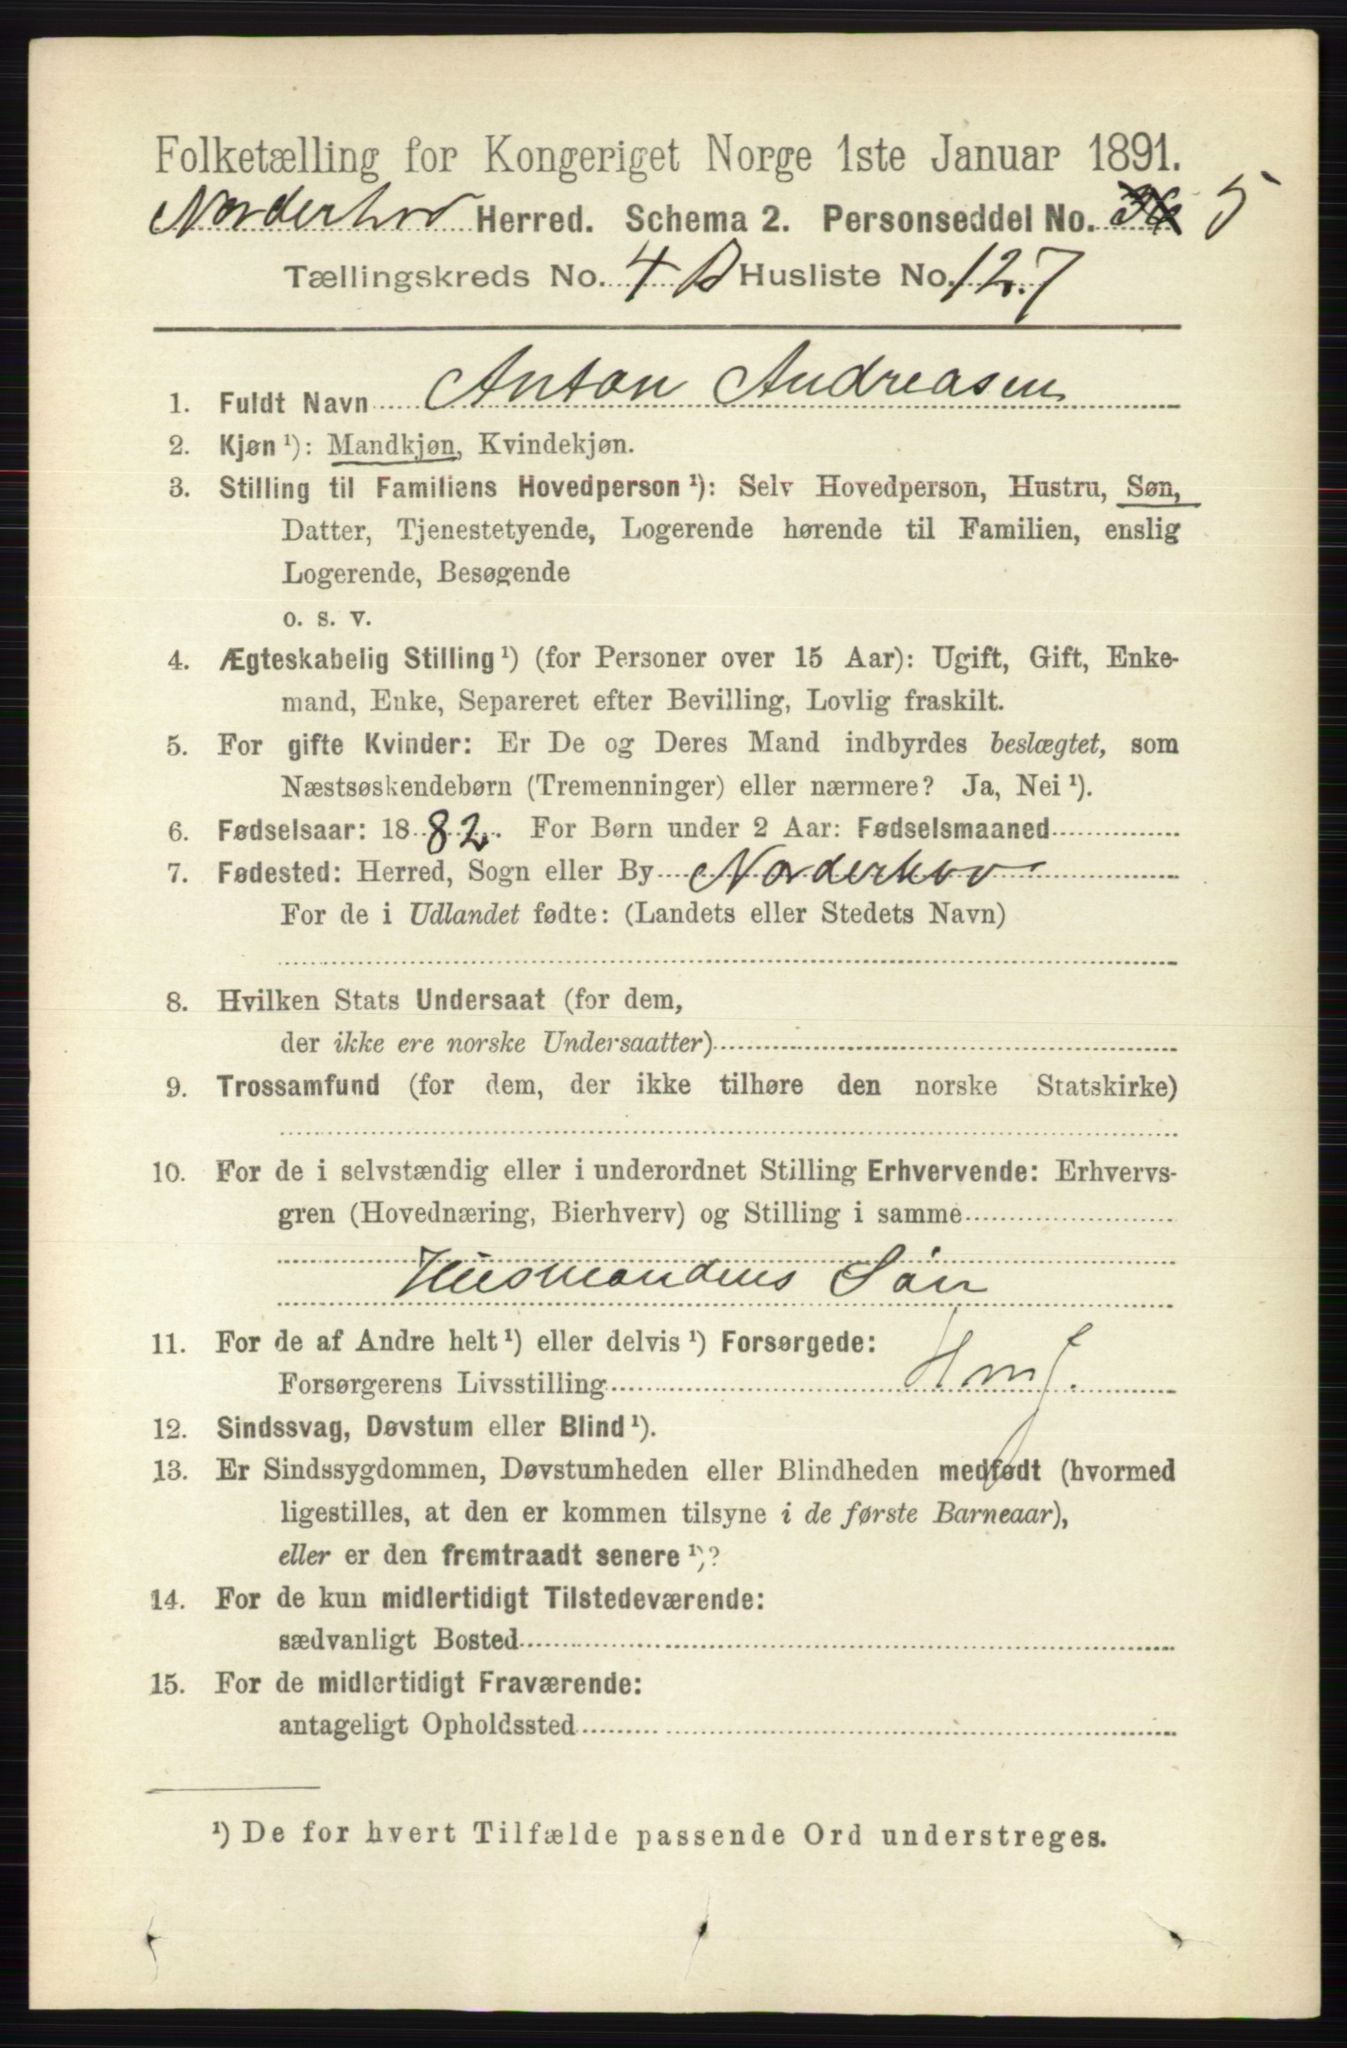 Folketælling for Kongeriget Norge 1ste Januar 1891.
Norderhov Herred. Schema 2. Personseddel No. 5
Tællingskreds No. 4 B Husliste No. 127
1. Fuldt Navn Anton Andreasen
2. Kjøn¹): Mandkjøn, Kvindekjøn.
3. Stilling til Familiens Hovedperson¹): Selv Hovedperson, Hustru, Søn,
Datter, Tjenestetyende, Logerende hørende til Familien, enslig
Logerende, Besøgende
o. s. v.
4. Ægteskabelig Stilling¹) (for Personer over 15 Aar): Ugift, Gift, Enke-
mand, Enke, Separeret efter Bevilling, Lovlig fraskilt.
5. For gifte Kvinder: Er De og Deres Mand indbyrdes beslægtet, som
Næstsøskendebørn (Tremenninger) eller nærmere? Ja, Nei¹).
6. Fødselsaar: 1882. For Børn under 2 Aar: Fødselsmaaned
7. Fødested: Herred, Sogn eller By Norderhov
For de i Udlandet fødte: (Landets eller Stedets Navn)
8. Hvilken Stats Undersaat (for dem,
der ikke ere norske Undersaatter)
9. Trossamfund (for dem, der ikke tilhøre den norske Statskirke)
10. For de i selvstændig eller i underordnet Stilling Erhvervende: Erhvervs-
gren (Hovednæring, Bierhverv) og Stilling i samme
Husmandens Søn
11. For de af Andre helt¹) eller delvis¹) Forsørgede:
Forsørgerens Livsstilling
12. Sindssvag, Døvstum eller Blind¹).
13. Er Sindssygdommen, Døvstumheden eller Blindheden medfødt (hvormed
ligestilles, at den er kommen tilsyne i de første Barneaar),
eller er den fremtraadt senere¹)?
14. For de kun midlertidigt Tilstedeværende:
sædvanligt Bosted
15. For de midlertidigt Fraværende:
antageligt Opholdssted
¹) De for hvert Tilfælde passende Ord understreges.